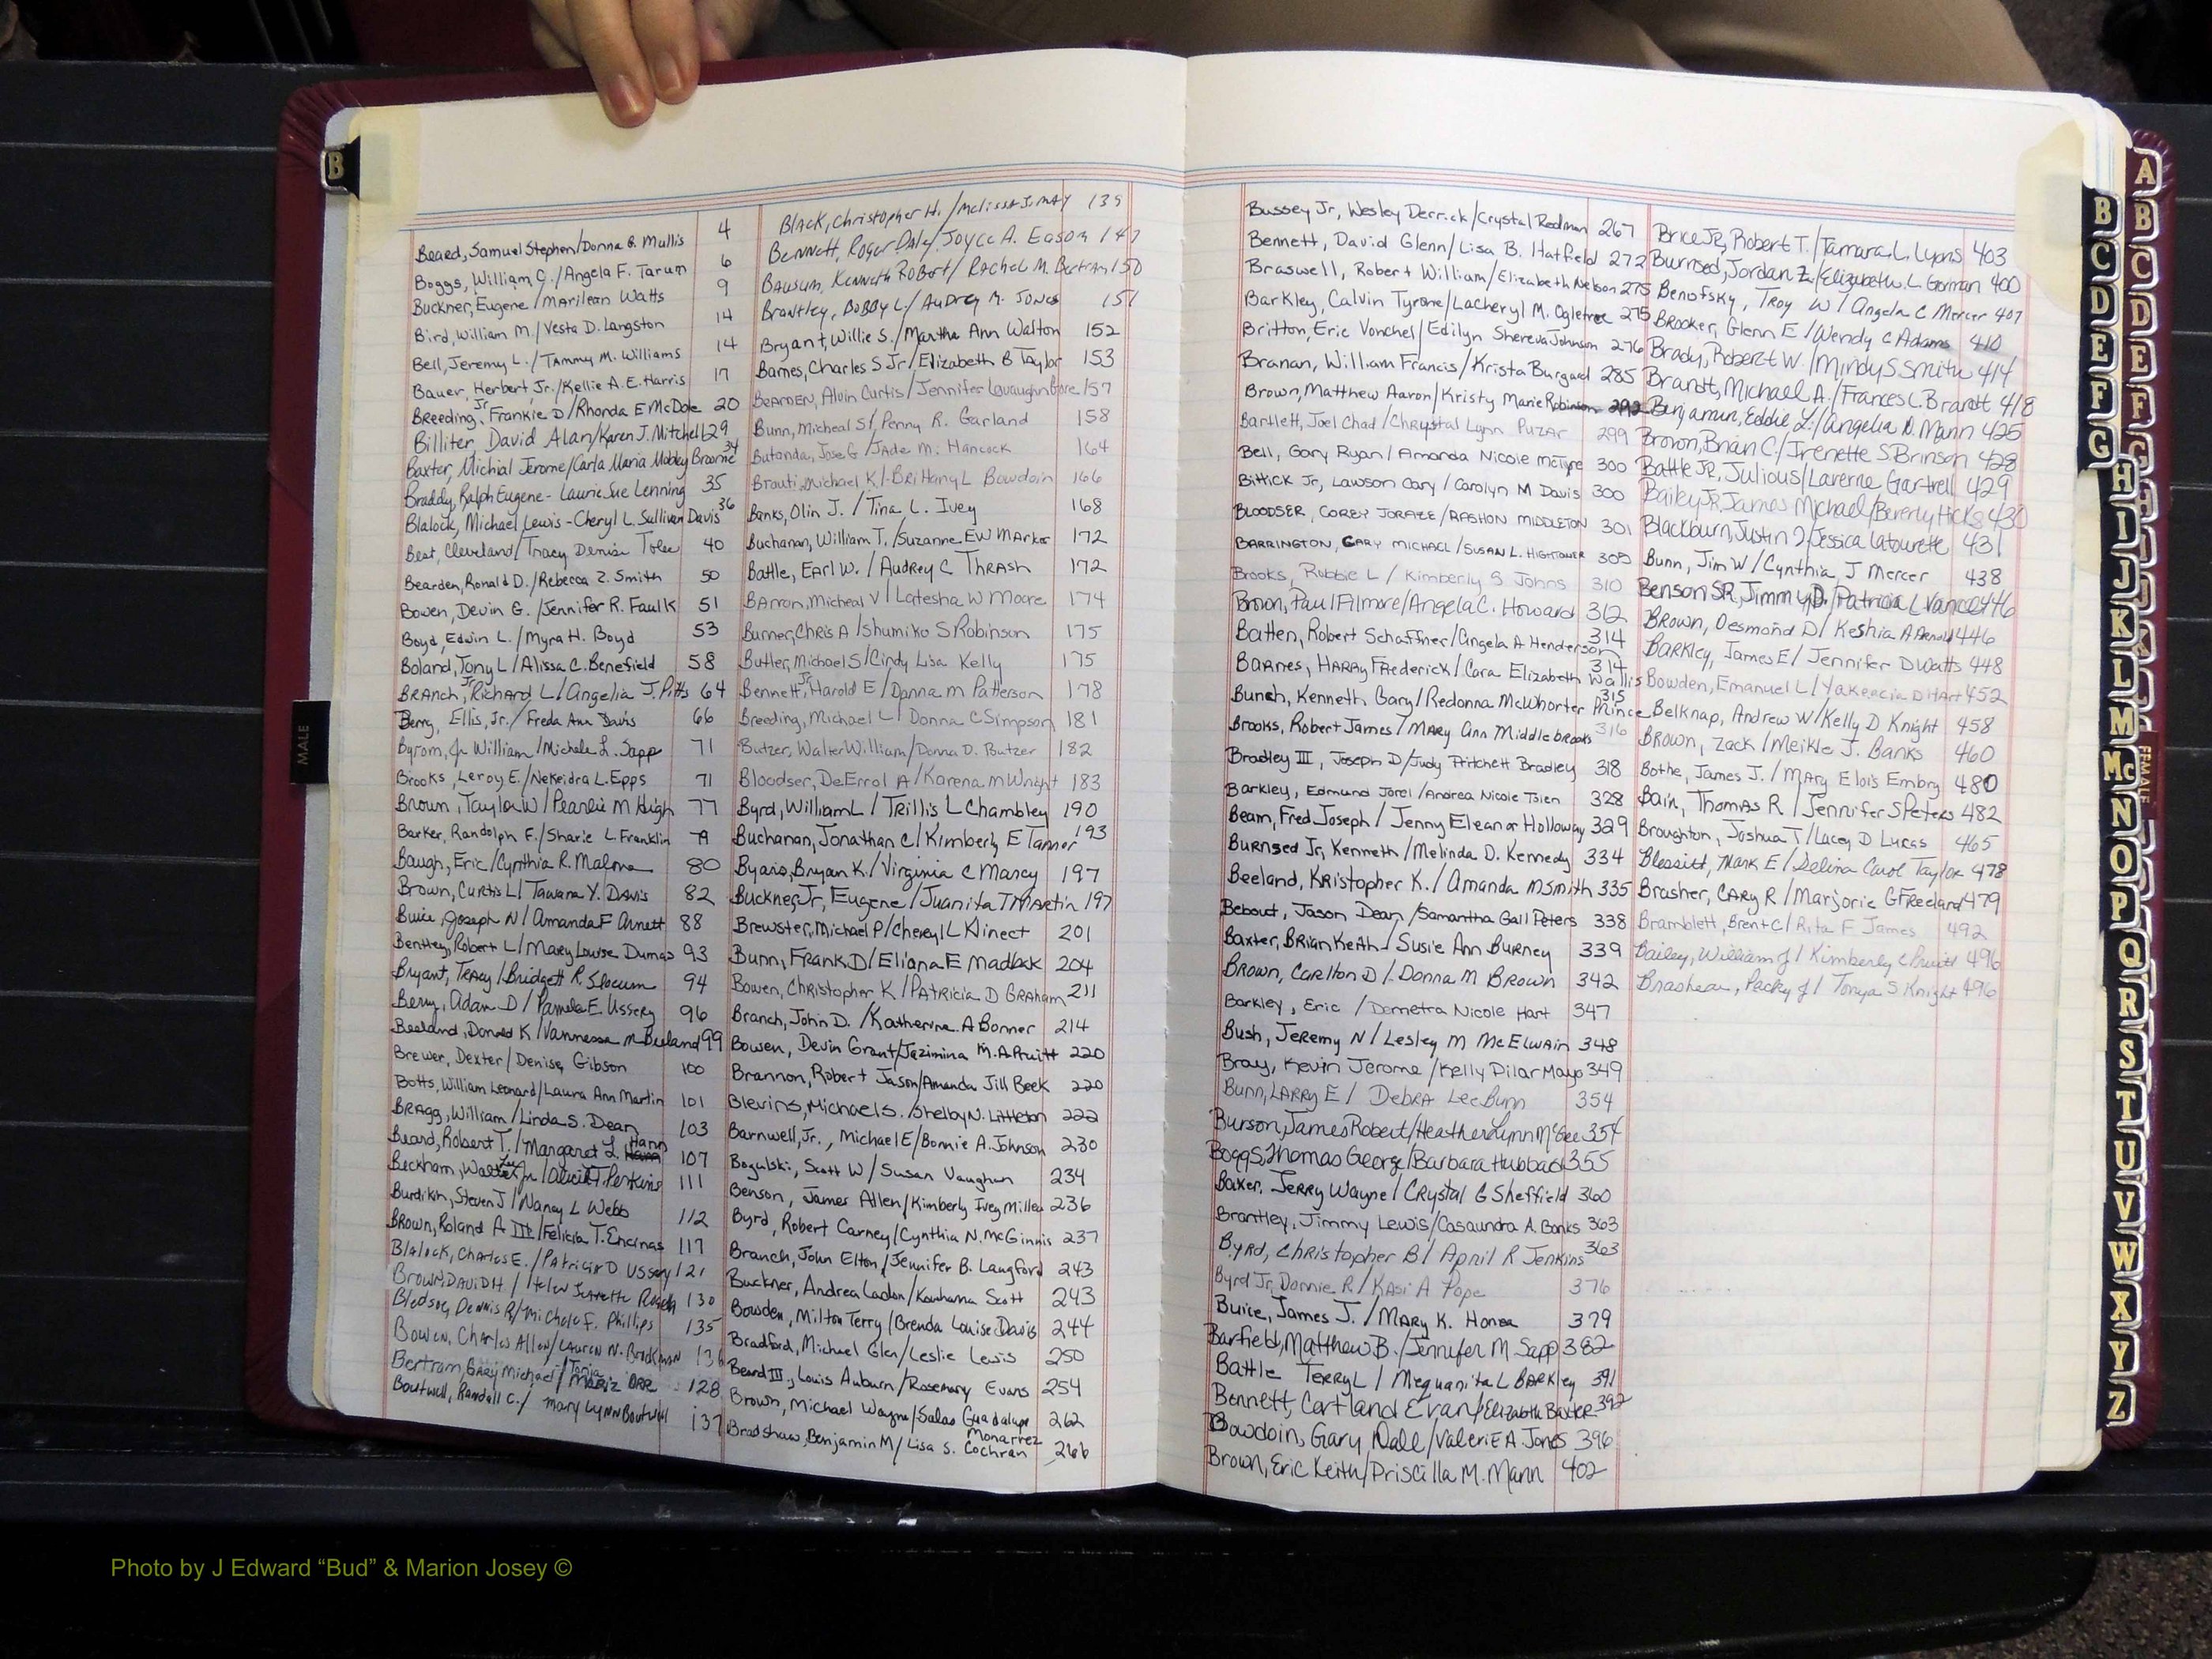 B
MALE
Beard, Samuel Stephen/Donna G. Mullis 4
Boggs, William C./Angela F. Tarum 6
Buckner, Eugene/Marilean Watts 9
Bird, William M./Vesta D. Langston 14
Bell, Jeremy L./Tammy M. Williams 14
Bauer, Herbert Jr./Kellie A.E. Harris 17
Breeding, Jr Frankie D/Rhonda E McDole 20
Billiter, David Alan/Karen J. Mitchell 29
Baxter, Michial Jerome/Carla Maria Mobley Broome 34
Braddy, Ralph Eugene - Laurie Sue Lenning 35
Blalock, Michael Lewis - Cheryl L. Sullivan Davis 36
Beat, Cleveland/Tracy Denise 40
Bearden, Ronald D./Rebecca Z. Smith 50
Bowen, Devin G./Jennifer R. Faulk 51
Boyd, Edwin L./Myra H. Boyd 53
Boland, Tony L/Alissa C. Benefield 58
BRAnch, Jr Richard L/Angelia J. Pitts 64
Berry, Ellis, Jr./Freda Ann Davis 66
Byrom, Jr William/Michele L. Sapp 71
Brooks, Leroy E./Nekeidra L. Epps 71
Brown, Taylor W/Pearlie M High 77
Barker, Randolph F./Sharie L Franklin 79
Baugh, Eric/Cynthia R. Malone 80
Brown, Curtis L/Tawana Y. Davis 82
Buice, Joseph N/Amanda F Arnett 88
Bentley, Robert L/Mary Louise Dumas 93
Bryant, Tracy/Bridgett R. Slocum 94
Berry, Adam D/Pamela E. Ussery 96
Beeland, Donald K/Vannessa M Beeland 99
Brewer, Dexter/Denise Gibson 100
Botts, William Leonard/Laura Ann Martin 101
BRAgg, William/Linda S. Dean 103
Beard, Robert T./Margaret L. Hann 107
Beckham, Walter Jr/Alicia T Perkins 111
Burdikin, Steven J/Nancy L Webb 112
Brown, Roland A III/Felicia T. Encinas 117
Blalock, Charles E./Patricia D Ussery 121
Brown, David H/Helen Jeanette 130
Bledsoe, Dennis R/Michele F. Phillips 135
Bowen, Charles Allen/Lauren N. Brockman 136
Bertram, Gary Michael/Tonja ORR 128
Boutwell, Randall C./Mary Lynn Boutwell 137
Black, Christopher H./Melissa J. May 139
Bennett, Roger Dale/Joyce A. Eason 147
Bausum, Kenneth Robert/Rachel M. Bertram 150
Brantley, Bobby L/Audrey M. Jones 151
Bryant, Willie S./Martha Ann Walton 152
Barnes, Charles S Jr/Elizabeth B Taylor 153
Bearden, Alvin Curtis/Jennifer Lavaughn Gore 157
Bunn, Micheal S/Penny R. Garland 158
Batanda, Jose G/Jade M. Hancock 164
Brauti, Michael K/Brittany L Bowdoin 166
Banks, Olin J./Tina L. Ivey 168
Buchanan, William T./Suzanne EW Marker 172
Battle, Earl W./Audrey C Thrash 172
BArron, Micheal V/Latesha W Moore 174
Burner, Chris A/Shumiko S Robinson 175
Butler, Michael S/Cindy Lisa Kelly 175
Bennett, Jr Harold E/Donna M Patterson 178
Breeding, Michael L/Donna C Simpson 181
Butzer, Walter William/Donna D. Butzer 182
Bloodser, DeErrol A/Karena M Wright 183
Byrd, William L/Trillis L Chambley 190
Buchanan, Jonathan C/Kimberly E Tanner 193
Byars, Bryan K./Virginia C Marcy 197
Buckner, Jr, Eugene/Juanita T Martin 197
Brewster, Michael P/Cheryl L Klinect 201
Bunn, Frank D/Eliana E Maddock 204
Bowen, Christopher K/Patricia D Graham 211
Branch, John D./Katherine A Bonner 214
Bowen, Devin Grant/Jazimina M. A Pruitt 220
Brannon, Robert Jason/Amanda Jill Beek 220
Blevins, Michael S./Shelby N. Littleton 222
Barnwell, Jr., Michael E/Bonnie A. Johnson 230
Bogulski, Scott W/Susan Vaughun 234
Benson, James Allen/Kimberly Ivey Miller 236
Byrd, Robert Carney/Cynthia N. McGinnis 237
Branch, John Elton/Jennifer B. Langford 243
Buckner, Andrea Ladon/Kouhama Scott 243
Bowden, Milton Terry/Brenda Louise Davis 244
Bradford, Michael Glen/Leslie Lewis 250
Beard III., Louis Auburn/Rosemary Evans 254
Brown, Michael Wayne/Salas Guadalupe Monarrez 262
Bradshaw, Benjamin M/Lisa S. Cochran 266
Bussey Jr, Wesley Derrick/Crystal Redman 267
Bennett, David Glenn/Lisa B. Hatfield 272
Braswell, Robert William/Elizabeth Nelson 275
Barkley, Calvin Tyrone/Lacheryl M. Ogletree 275
Britton, Eric Vonchel/Edilyn Shereva Johnson 276
Branan, William Francis/Krista Burgard 285
Brown, Matthew Aaron/Kristy Marie Robinson 292
Bartlett, Joel Chad/Chrystal Lynn Puzar 299
Bell, Gary Ryan/Amanda Nicole McTyre 300
Bittick Jr, Lawson Cary/Carolyn M Davis 300
BLOODSER, COREY JORAZE/RASHON MIDDLETON 301
BARRINGTON, GARY MICHAEL/SUSAN L. HIGHTOWER 309
Brooks, Robbie L/Kimberly S Johns 310
Brown, Paul Filmore/Angela C. Howard 312
Batten, Robert Schaffner/Angela A Henderson 314
Barnes, Harry Frederick/Cara Elizabeth Wallis 314
Bunch, Kenneth Gary/Redonna McWhorter Prince 315
Brooks, Robert James/Mary Ann Middlebrooks 316
Bradley III, Joseph D/Judy Pritchett Bradley 318
Barkley, Edmund Jorel/Andrea Nicole Tsien 328
Beam, Fred Joseph/Jenny Eleanor Holloway 329
Burnsed Jr, Kenneth/Melinda D. Kennedy 334
Beeland, Kristopher K./Amanda M Smith 335
Bebout, Jason Dean/Samantha Gail Peters 338
Baxter, Brian Keith/Susie Ann Burney 339
Brown, Carlton D/Donna M Brown 342
Barkley, Eric/Demetra Nicole Hart 347
Bush, Jeremy N/Lesley M McElwain 348
Bray, Kevin Jerome/Kelly Pilar Mayo 349
Bunn, Larry E/Debra Lee Bunn 354
Burson, James Robert/Heather Lynn McGee 354
Boggs, Thomas George/Barbara Hubbard 355
Baxer, Jerry Wayne/Crystal G Sheffield 360
Brantley, Jimmy Lewis/Casaundra A. Banks 363
Byrd, Christopher B/April R Jenkins 363
Byrd Jr, Donnie R/Kasi A Pope 376
Buice, James J./Mary K. Honea 379
Barfield, Matthew B./Jennifer M Sapp 382
Battle Terry L/Mequanita L Barkley 391
Bennett, Cortland Evan/Elizabeth Baxter 392
Bowdoin, Gary Dale/Valerie A. Jones 396
Brown, Eric Keith/Priscilla M. Mann 402
Brice JR, Robert T./Tamara L. Lyons 403
Burnsed, Jordan Z./Elizabeth L Gorman 400
Benofsky, Troy W/Angela C Mercer 407
Brooker, Glenn E/Wendy C Adams 410
Brady, Robert W/Mindy S Smith 414
Brandt, Michael A./Frances L. Brandt 418
Benjamin, Eddie L./Angelia D. Mann 425
Brown, Brian C./Irenette S Brinson 428
Battle JR, Julious/Laverne Gartrell 429
Bailey JR, James Michael/Beverly Hicks 430
Blackburn, Justin J/Jessica Latourette 431
Bunn, Jim W/Cynthia J Mercer 438
Benson SR, Jimmy D./Patricia L Vance 446
Brown, Desmond D/Keshia A Arnold 446
Barkley, James E/Jennifer D Watts 448
Bowden, Emanuel L/Yakencia D Hart 452
Belknap, Andrew W/Kelly D Knight 458
Brown, Zack/Meikle J. Banks 460
Bothe, James J./Mary Elois Embry 480
Bain, Thomas R/Jennifer S Peters 482
Broughton, Joshua T/Lacey D Lucas 465
Blessitt, Mark E/Delina Carol Taylor 478
Brasher, Cary R/Marjorie G Freeland 479
Bramblett, Brent C/Rita F James 492
Bailey, William J/Kimberly C Pruitt 496
Brashear, Packy J/Tonya S Knight 496
B
C
D
E
F
G
H
I
J
K
L
M
Mc
N
O
P
Q
R
S
T
U
V
W
X
Y
Z
A
B
C
D
E
F
G
H
FEMALE
Photo by J Edward “Bud” & Marion Josey ©